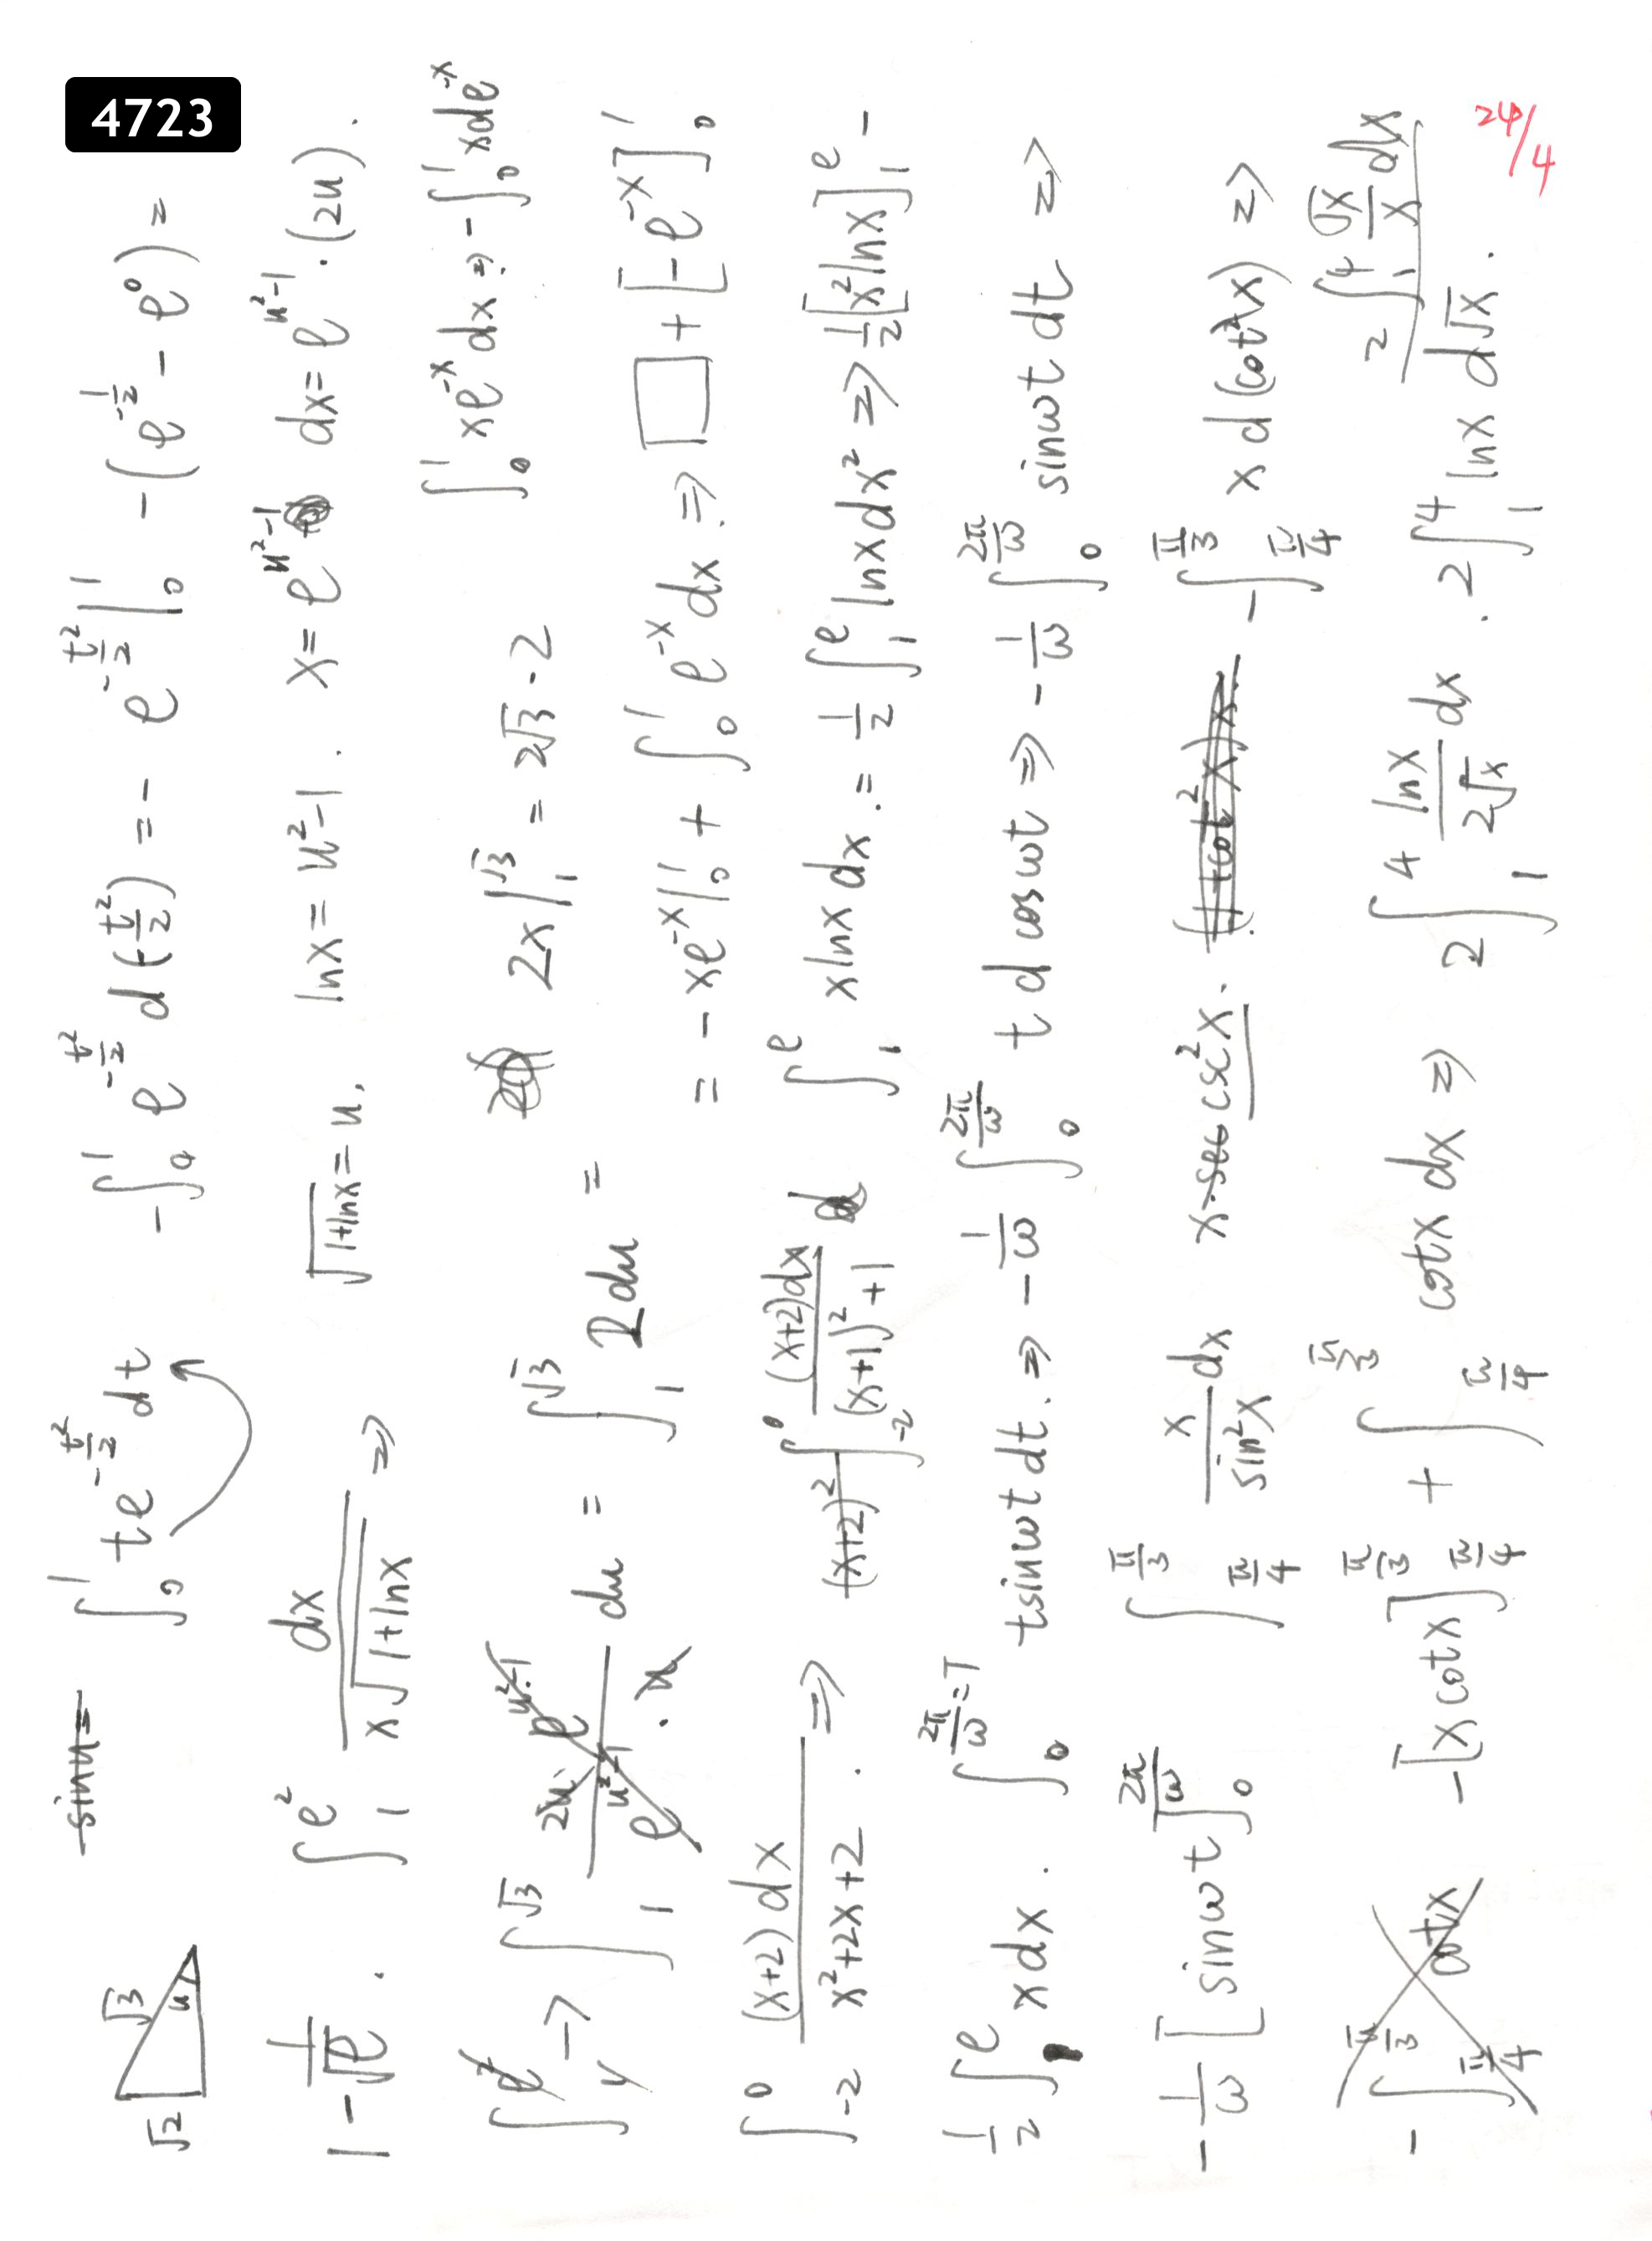 4723
24/4
√2 √3 u sinu= ∫₀¹ te^(-t²/2) dt -∫₀¹ e^(-t²/2) d(-t²/2) = - e^(-t²/2)|₀¹ -(e^(-1/2) - e⁰) =
1 - 1/√e . ∫₁^(e²) dx/(x√(1+lnx)) => √(1+lnx) = u, lnx = u²-1. x = e^(u²-1) dx = e^(u²-1)·(2u).
∫ e² -> ∫₁^(√3) (2u·e^(u²-1))/(e^(u²-1)·u) du = ∫₁^(√3) 2du = 2x|₁^(√3) = 2√3-2 ∫₀¹ xe^(-x) dx => -∫₀¹ xde^(-x)
= -xe^(-x)|₀¹ + ∫₀¹ e^(-x) dx => □ + [-e^(-x)]₀¹
∫₋₂⁰ (x+2)dx/(x²+2x+2) . => (x+2)² ∫₋₂⁰ (x+2)dx/((x+1)²+1) ∫₁^e xlnx dx. = 1/2 ∫₁^e lnxdx² => 1/2[x²lnx]₁^e -
1/2 ∫₁^e xdx. ∫₀^(2π/ω=T) tsinωt dt. => -1/ω ∫₀^(2π/ω) t d cosωt => -1/ω ∫₀^(2π/ω) sinωt dt =>
-1/ω [sinωt]₀^(2π/ω) ∫_(π/4)^(π/3) x/sin²x dx x·sec csc²x. (1+cot²x)x. -∫_(π/4)^(π/3) x d(cotx) =>
-∫_(π/4)^(π/3) cotx -[xcotx]_(π/4)^(π/3) + ∫_(π/4)^(π/3) cotx dx => 2∫₁⁴ lnx/(2√x) dx . 2∫₁⁴ lnx d√x. 2∫₁⁴ √x/x dx